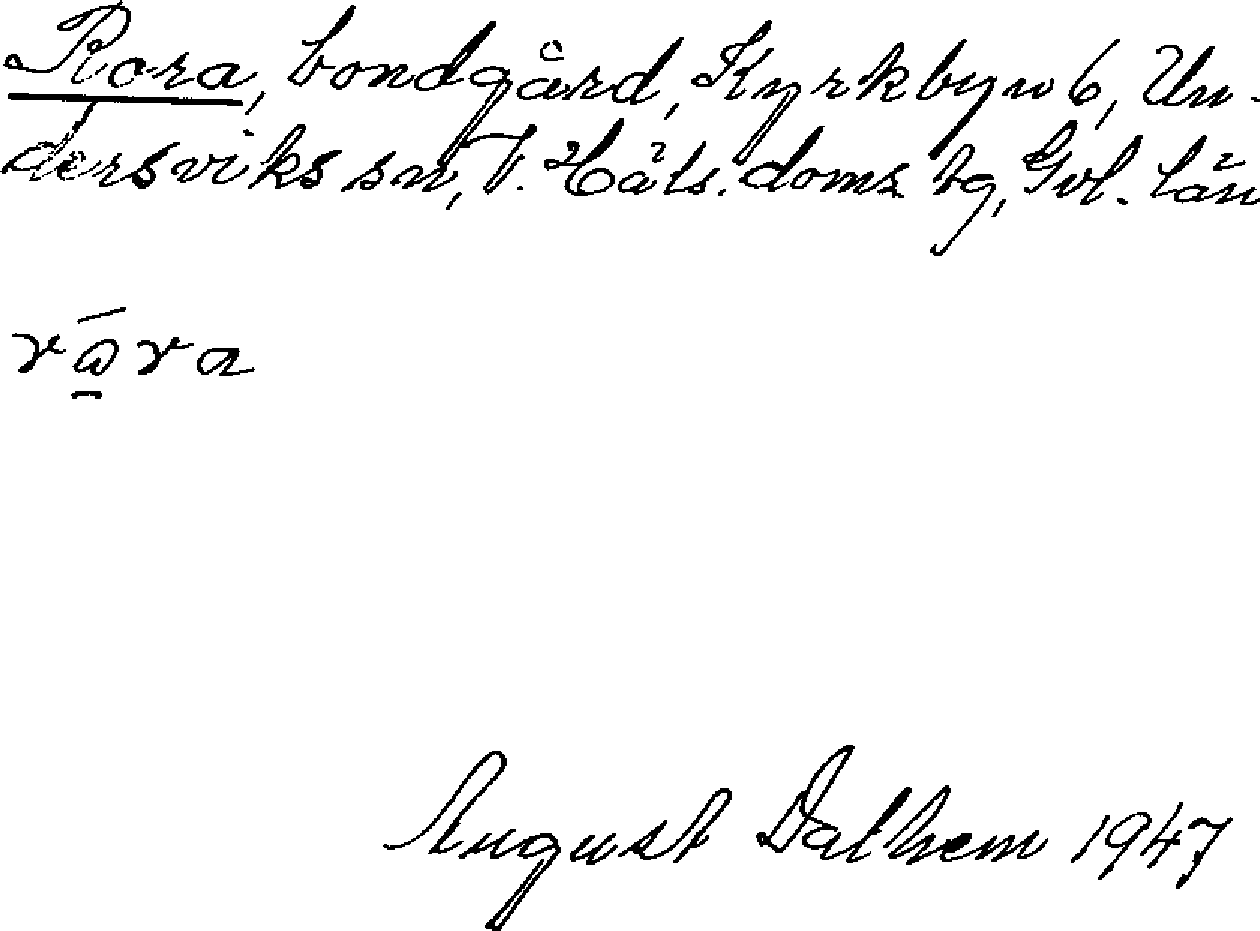 Rora, bondgård, Kyrkbyn 6, Un-
dersviks sn, V. Häls. doms bg, Gvl. län
råra
August Dalhem 1947